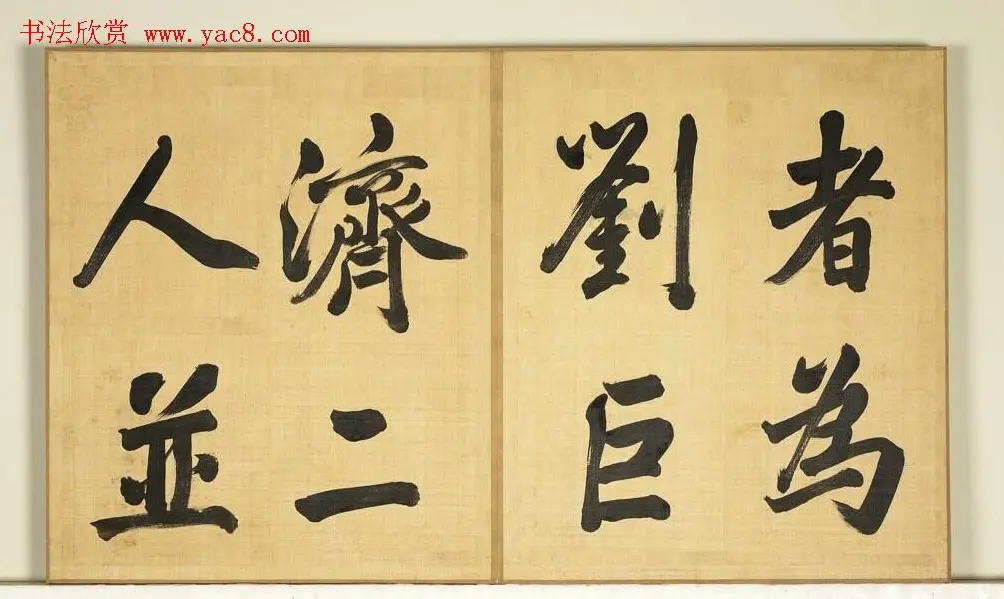 书法欣赏 www.yac8.com
者為
劉巨
濟二
人並